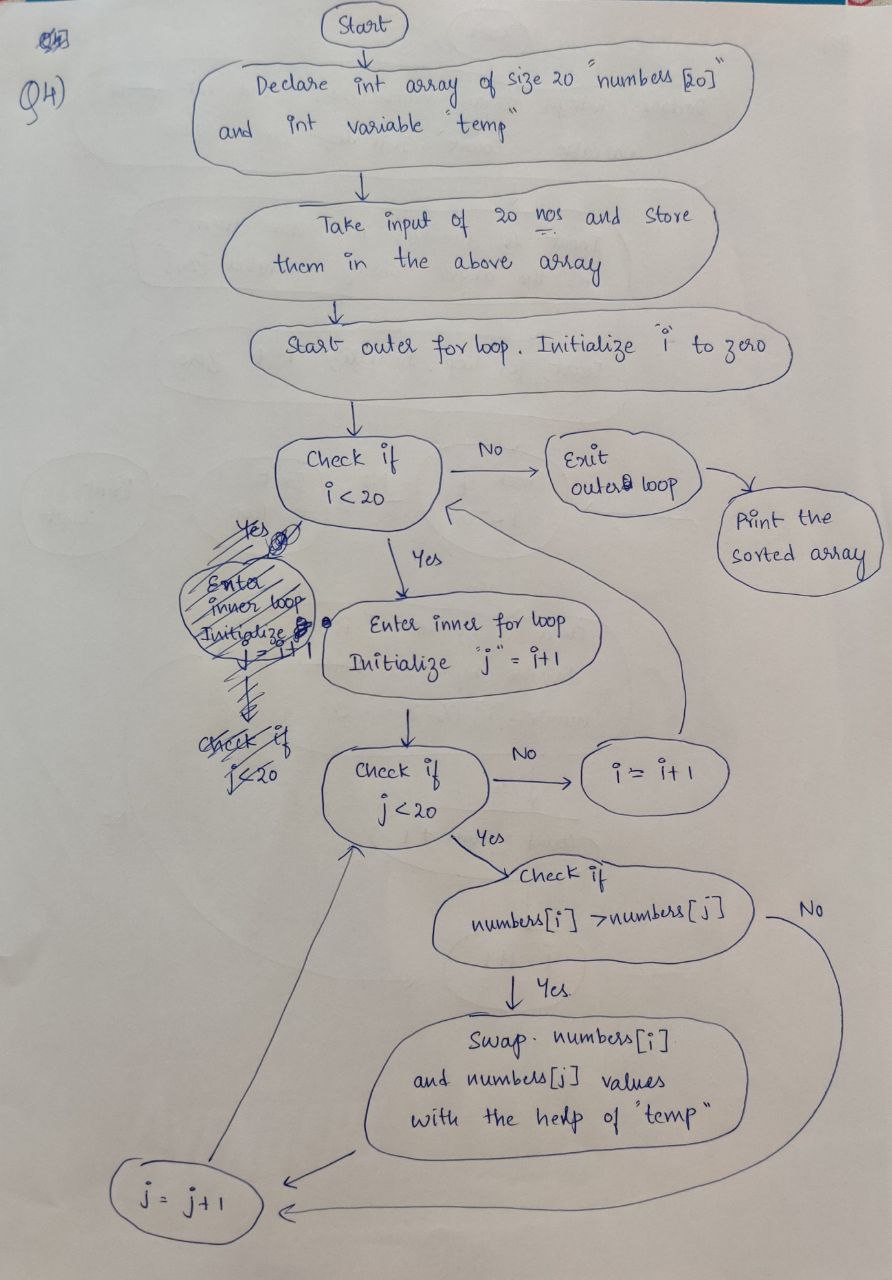 Q4)
Start
Declare int array of size 20 "numbers[20]"
and int variable "temp"
Take input of 20 nos and store
them in the above array
Start outer for loop. Initialize "i" to zero
Check if
i<20
No
Exit
outer loop
Print the
sorted array
Yes
Enter
inner loop
Initialize
j = i+1
Check if
j<20
Yes
Enter inner for loop
Initialize "j" = i+1
Check if
j<20
No
i = i+1
Yes
Check if
numbers[i] >numbers[j]
No
Yes.
Swap. numbers[i]
and numbers[j] values
with the help of "temp"
j = j+1